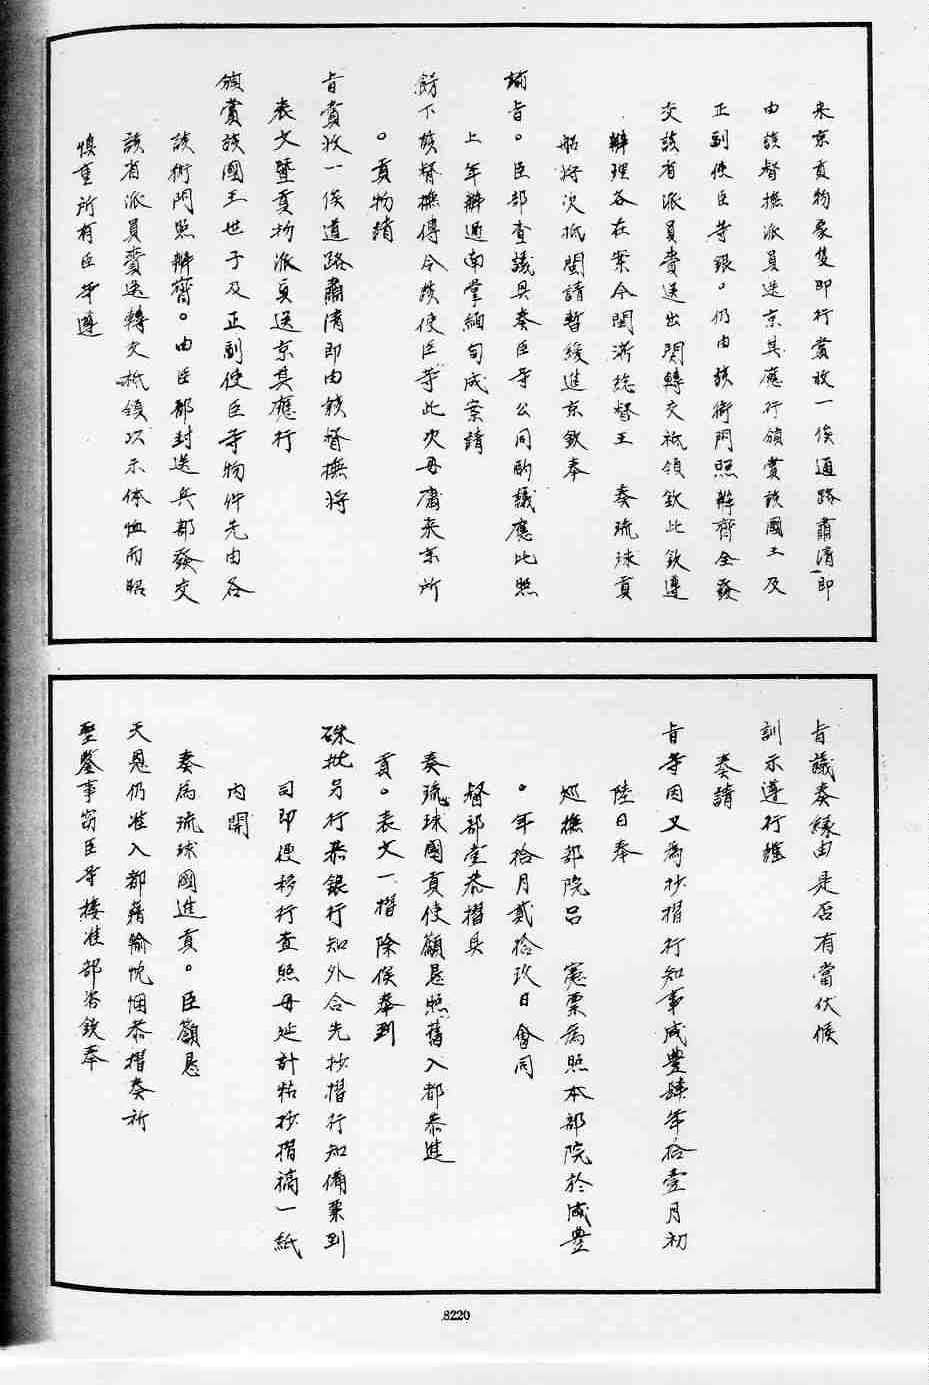 来京貢物象隻即行賞收一俟道路肅清即
由該督撫派員送京其應行頒賞該國王及
正副使臣等銀。仍由該衙門照辦齊全發
交該省派員賫送出関轉交祗領欽此欽遵
辦理各在案今閩浙總督王　奏琉球貢
船将次抵閩請暫緩進京欽奉
諭旨。臣部查議具奏臣等公同酌議應比照
上年辦過南掌緬甸成案請
飭下該督撫傳令該使臣等此次毋庸来京所
。貢物請
旨賞收一俟道路肅清即由該督撫将
表文暨貢物派員送京其應行
頒賞該國王世子及正副使臣等物件先由各
該衙門照辦齊。由臣部封送兵部發交
該省派員賫送轉交祗領以示体恤而昭
慎重所有臣等遵
旨議奏緣由是否有當伏候
訓示遵行謹
奏請
旨等因又為抄摺行知事咸豐肆年拾壹月初
陸日奉
巡撫部院呂　憲票為照本部院於咸豐
。年拾月貳拾玖日會同
督部堂恭摺具
奏琉球國貢使籲懇照舊入都恭進
貢。表文一摺除俟奉到
硃批另行恭録行知外合先抄摺行知備票到
司即便移行查照毋延計粘抄摺稿一紙
内開
奏為琉球國進貢。臣籲懇
天恩仍准入都藉輸忱悃恭摺奏祈
聖鑒事窃臣等接准部咨欽奉
8220